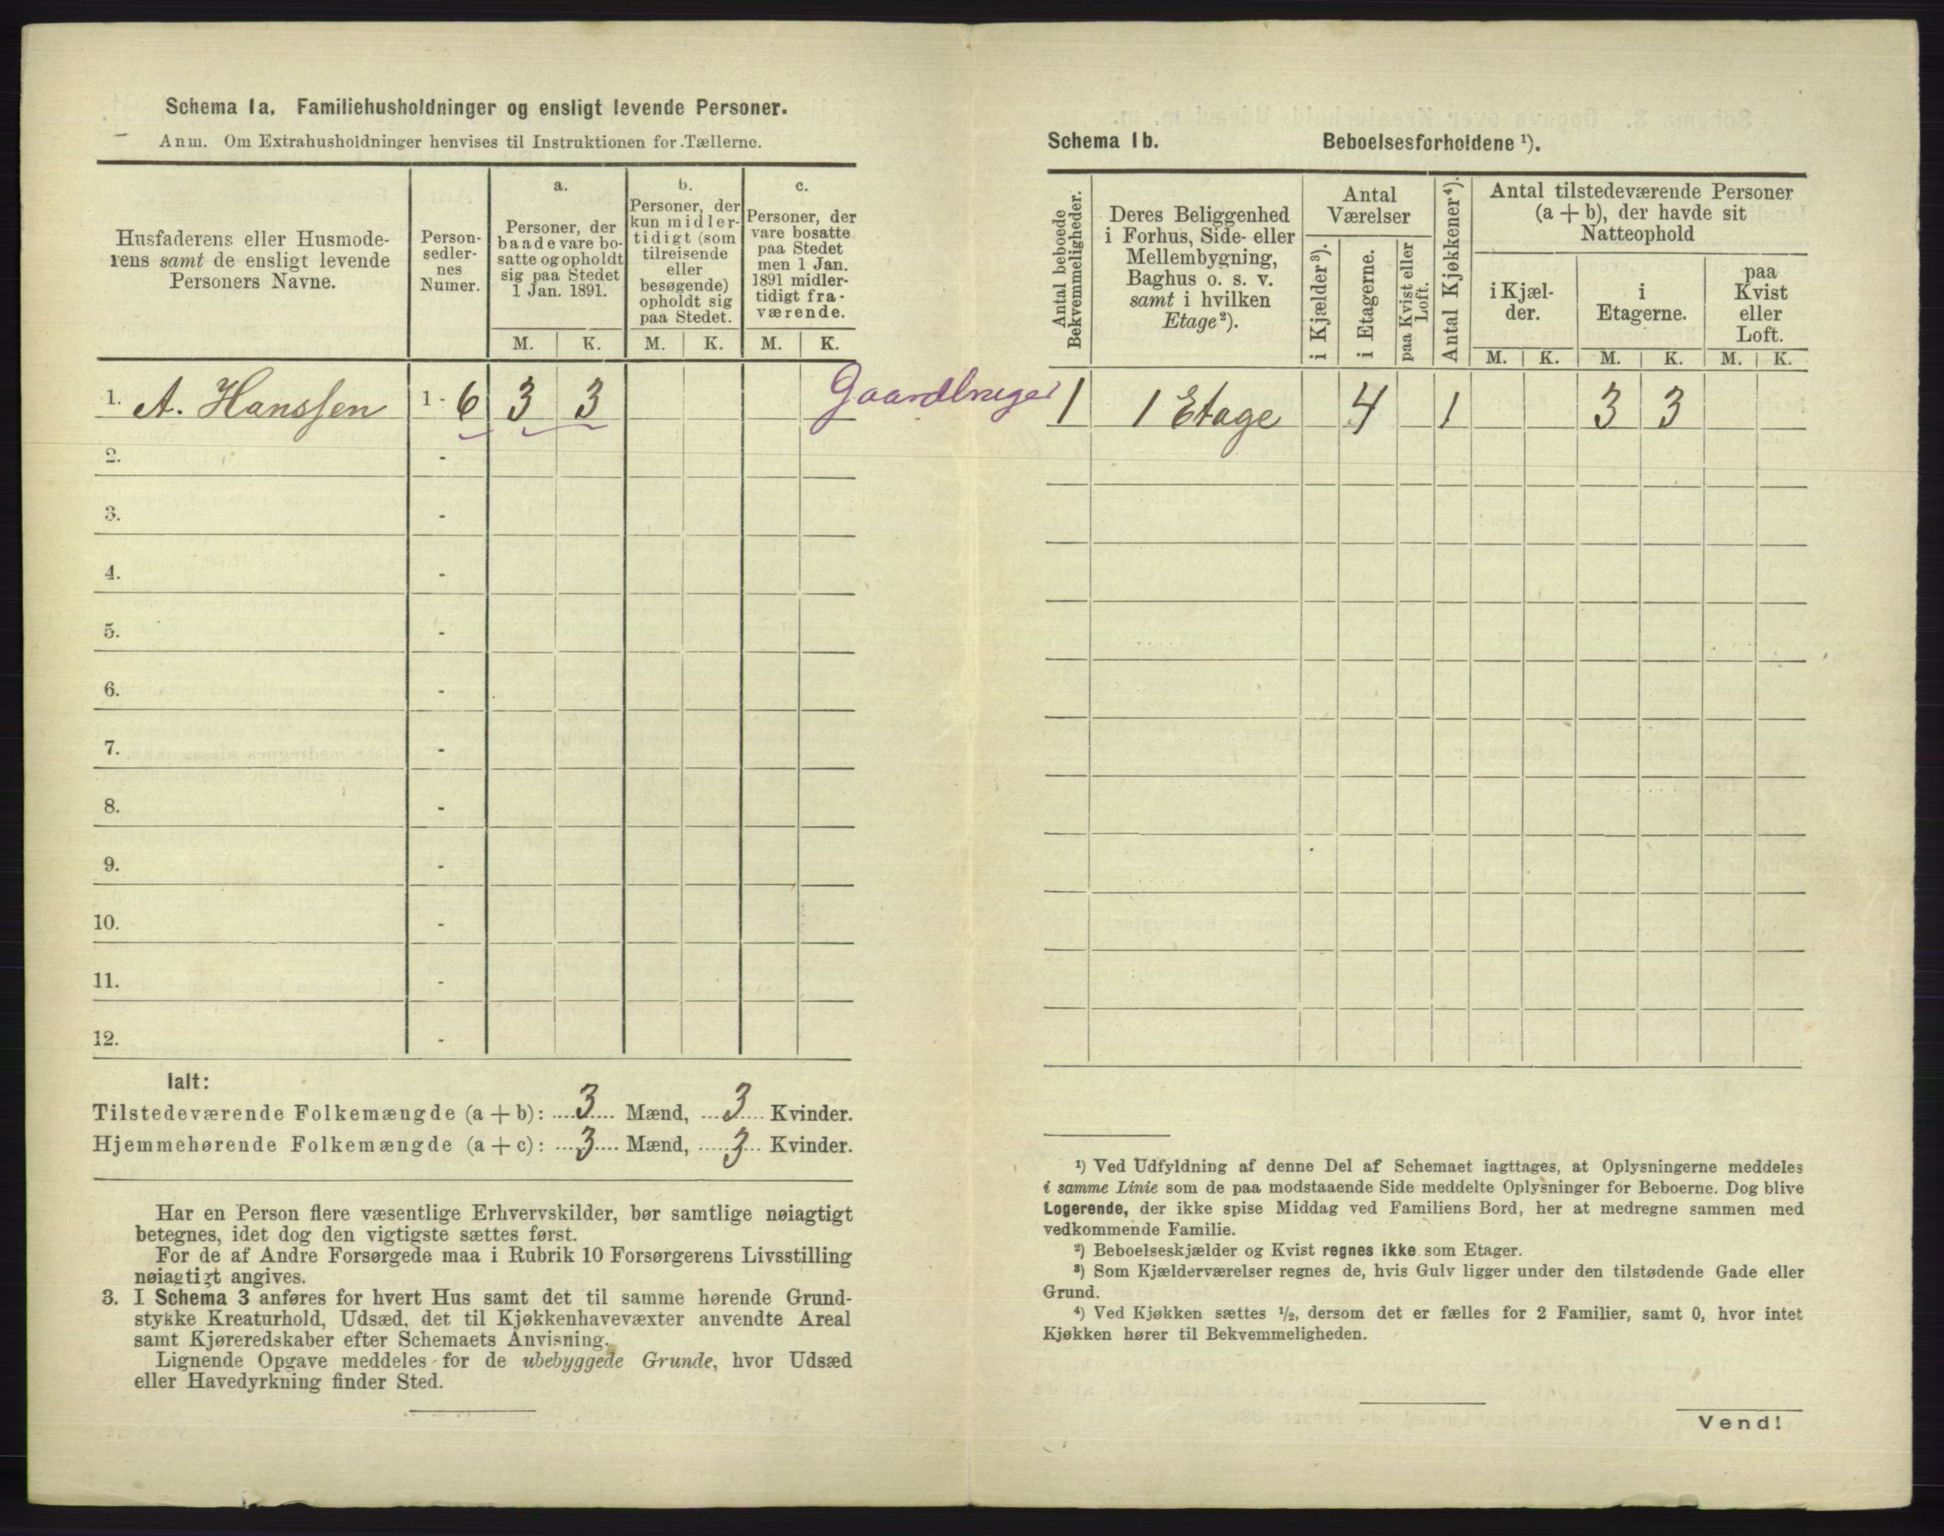 Schema 1a. Familiehusholdninger og ensligt levende Personer.
Anm. Om Extrahusholdninger henvises til Instruktionen for Tællerne.
Husfaderens eller Husmode-
rens samt de ensligt levende
Personers Navne.
Person-
sedler-
nes
Numer.
a.
Personer, der
baade vare bo-
satte og opholdt
sig paa Stedet
1 Jan. 1891.
b.
Personer, der
kun midler-
tidigt (som
tilreisende
eller
besøgende)
opholdt sig
paa Stedet.
c.
Personer, der
vare bosatte
paa Stedet
men 1 Jan.
1891 midler-
tidigt fra-
værende.
M. K. M. K. M. K.
1. A. Hanssen 1 - 6 3 3 Gaardbruger
2. -
3. -
4. -
5. -
6. -
7. -
8. -
9. -
10. -
11. -
12. -
Ialt:
Tilstedeværende Folkemængde (a + b): 3 Mænd, 3 Kvinder.
Hjemmehørende Folkemængde (a + c): 3 Mænd, 3 Kvinder.
Har en Person flere væsentlige Erhvervskilder, bør samtlige nøiagtigt
betegnes, idet dog den vigtigste sættes først.
For de af Andre Forsørgede maa i Rubrik 10 Forsørgerens Livsstilling
nøiagtigt angives.
3. I Schema 3 anføres for hvert Hus samt det til samme hørende Grund-
stykke Kreaturhold, Udsæd, det til Kjøkkenhavevæxter anvendte Areal
samt Kjøreredskaber efter Schemaets Anvisning.
Lignende Opgave meddeles for de ubebyggede Grunde, hvor Udsæd
eller Havedyrkning finder Sted.
Schema 1b. Beboelsesforholdene ¹).
Antal beboede
Bekvemmeligheder.
Deres Beliggenhed
i Forhus, Side- eller
Mellembygning,
Baghus o. s. v.
samt i hvilken
Etage²).
Antal
Værelser
i Kjælder³).
i Etagerne.
paa Kvist eller
Loft.
Antal Kjøkkener⁴).
Antal tilstedeværende Personer
(a + b), der havde sit
Natteophold
i Kjæl-
der.
i
Etagerne.
paa
Kvist
eller
Loft.
M. K. M. K. M. K.
1 1 Etage 4 1 3 3
¹) Ved Udfyldning af denne Del af Schemaet iagttages, at Oplysningerne meddeles
i samme Linie som de paa modstaaende Side meddelte Oplysninger for Beboerne. Dog blive
Logerende, der ikke spise Middag ved Familiens Bord, her at medregne sammen med
vedkommende Familie.
²) Beboelseskjælder og Kvist regnes ikke som Etager.
³) Som Kjælderværelser regnes de, hvis Gulv ligger under den tilstødende Gade eller
Grund.
⁴) Ved Kjøkken sættes ½, dersom det er fælles for 2 Familier, samt 0, hvor intet
Kjøkken hører til Bekvemmeligheden.
Vend!